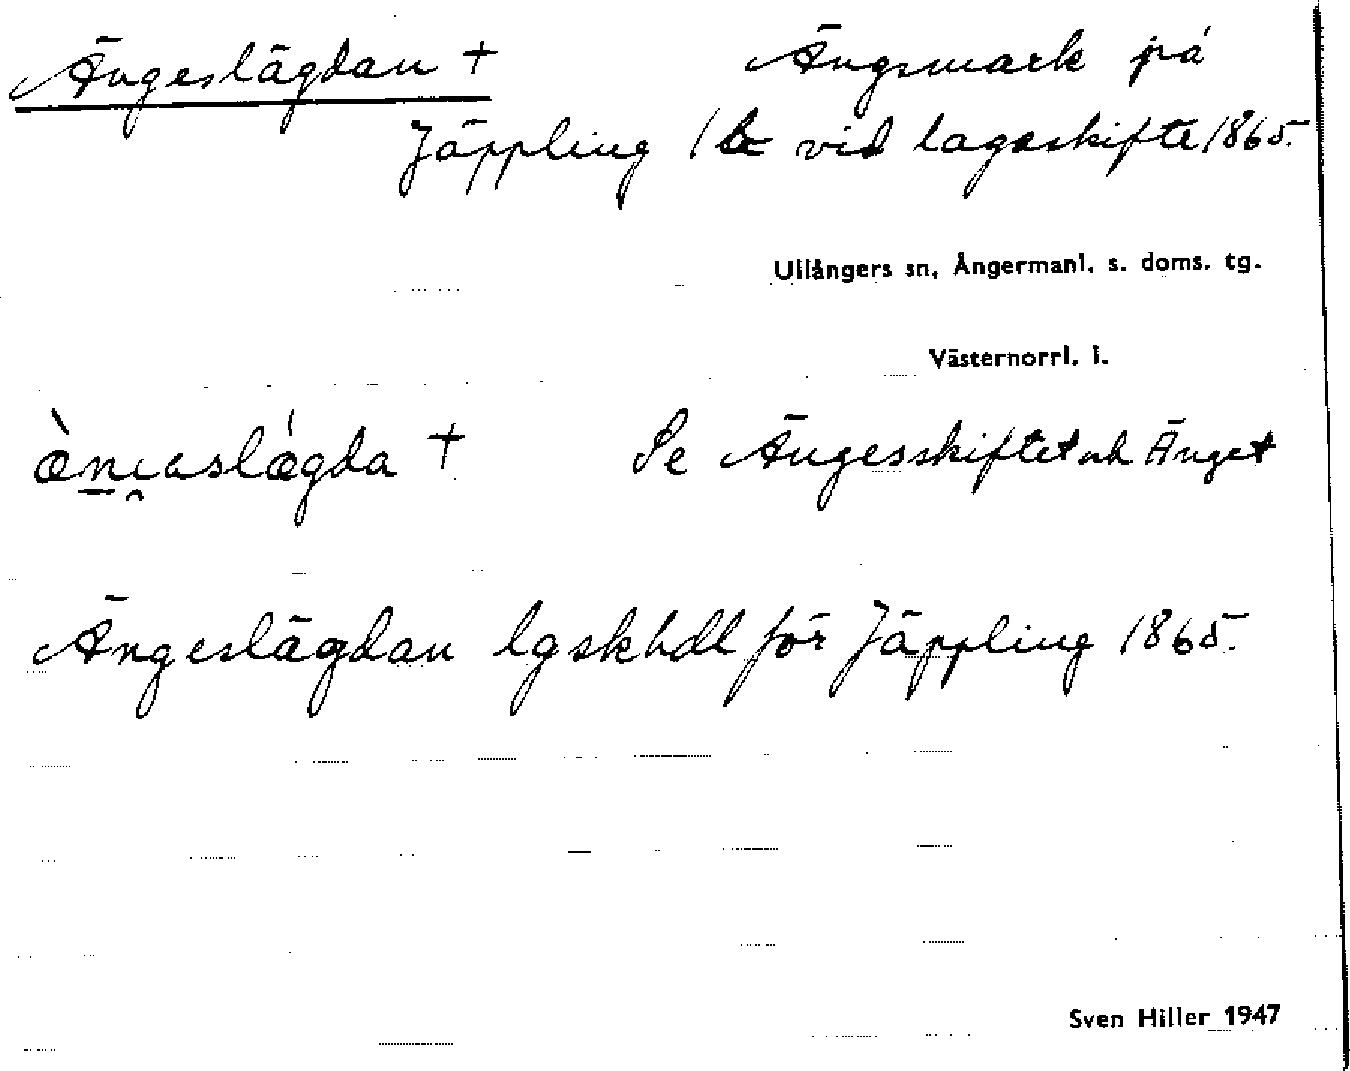 Ängeslägdan + Ängsmark på
Jäppling 1 vid lagaskifte 1865.
Ullångers sn, Ångermanl. s. doms. tg.
Västernorrl. l.
+ Se Ängesskiftet och Änget
Ängeslägdan lgskhdl för Jäppling 1865.
Sven Hiller 1947